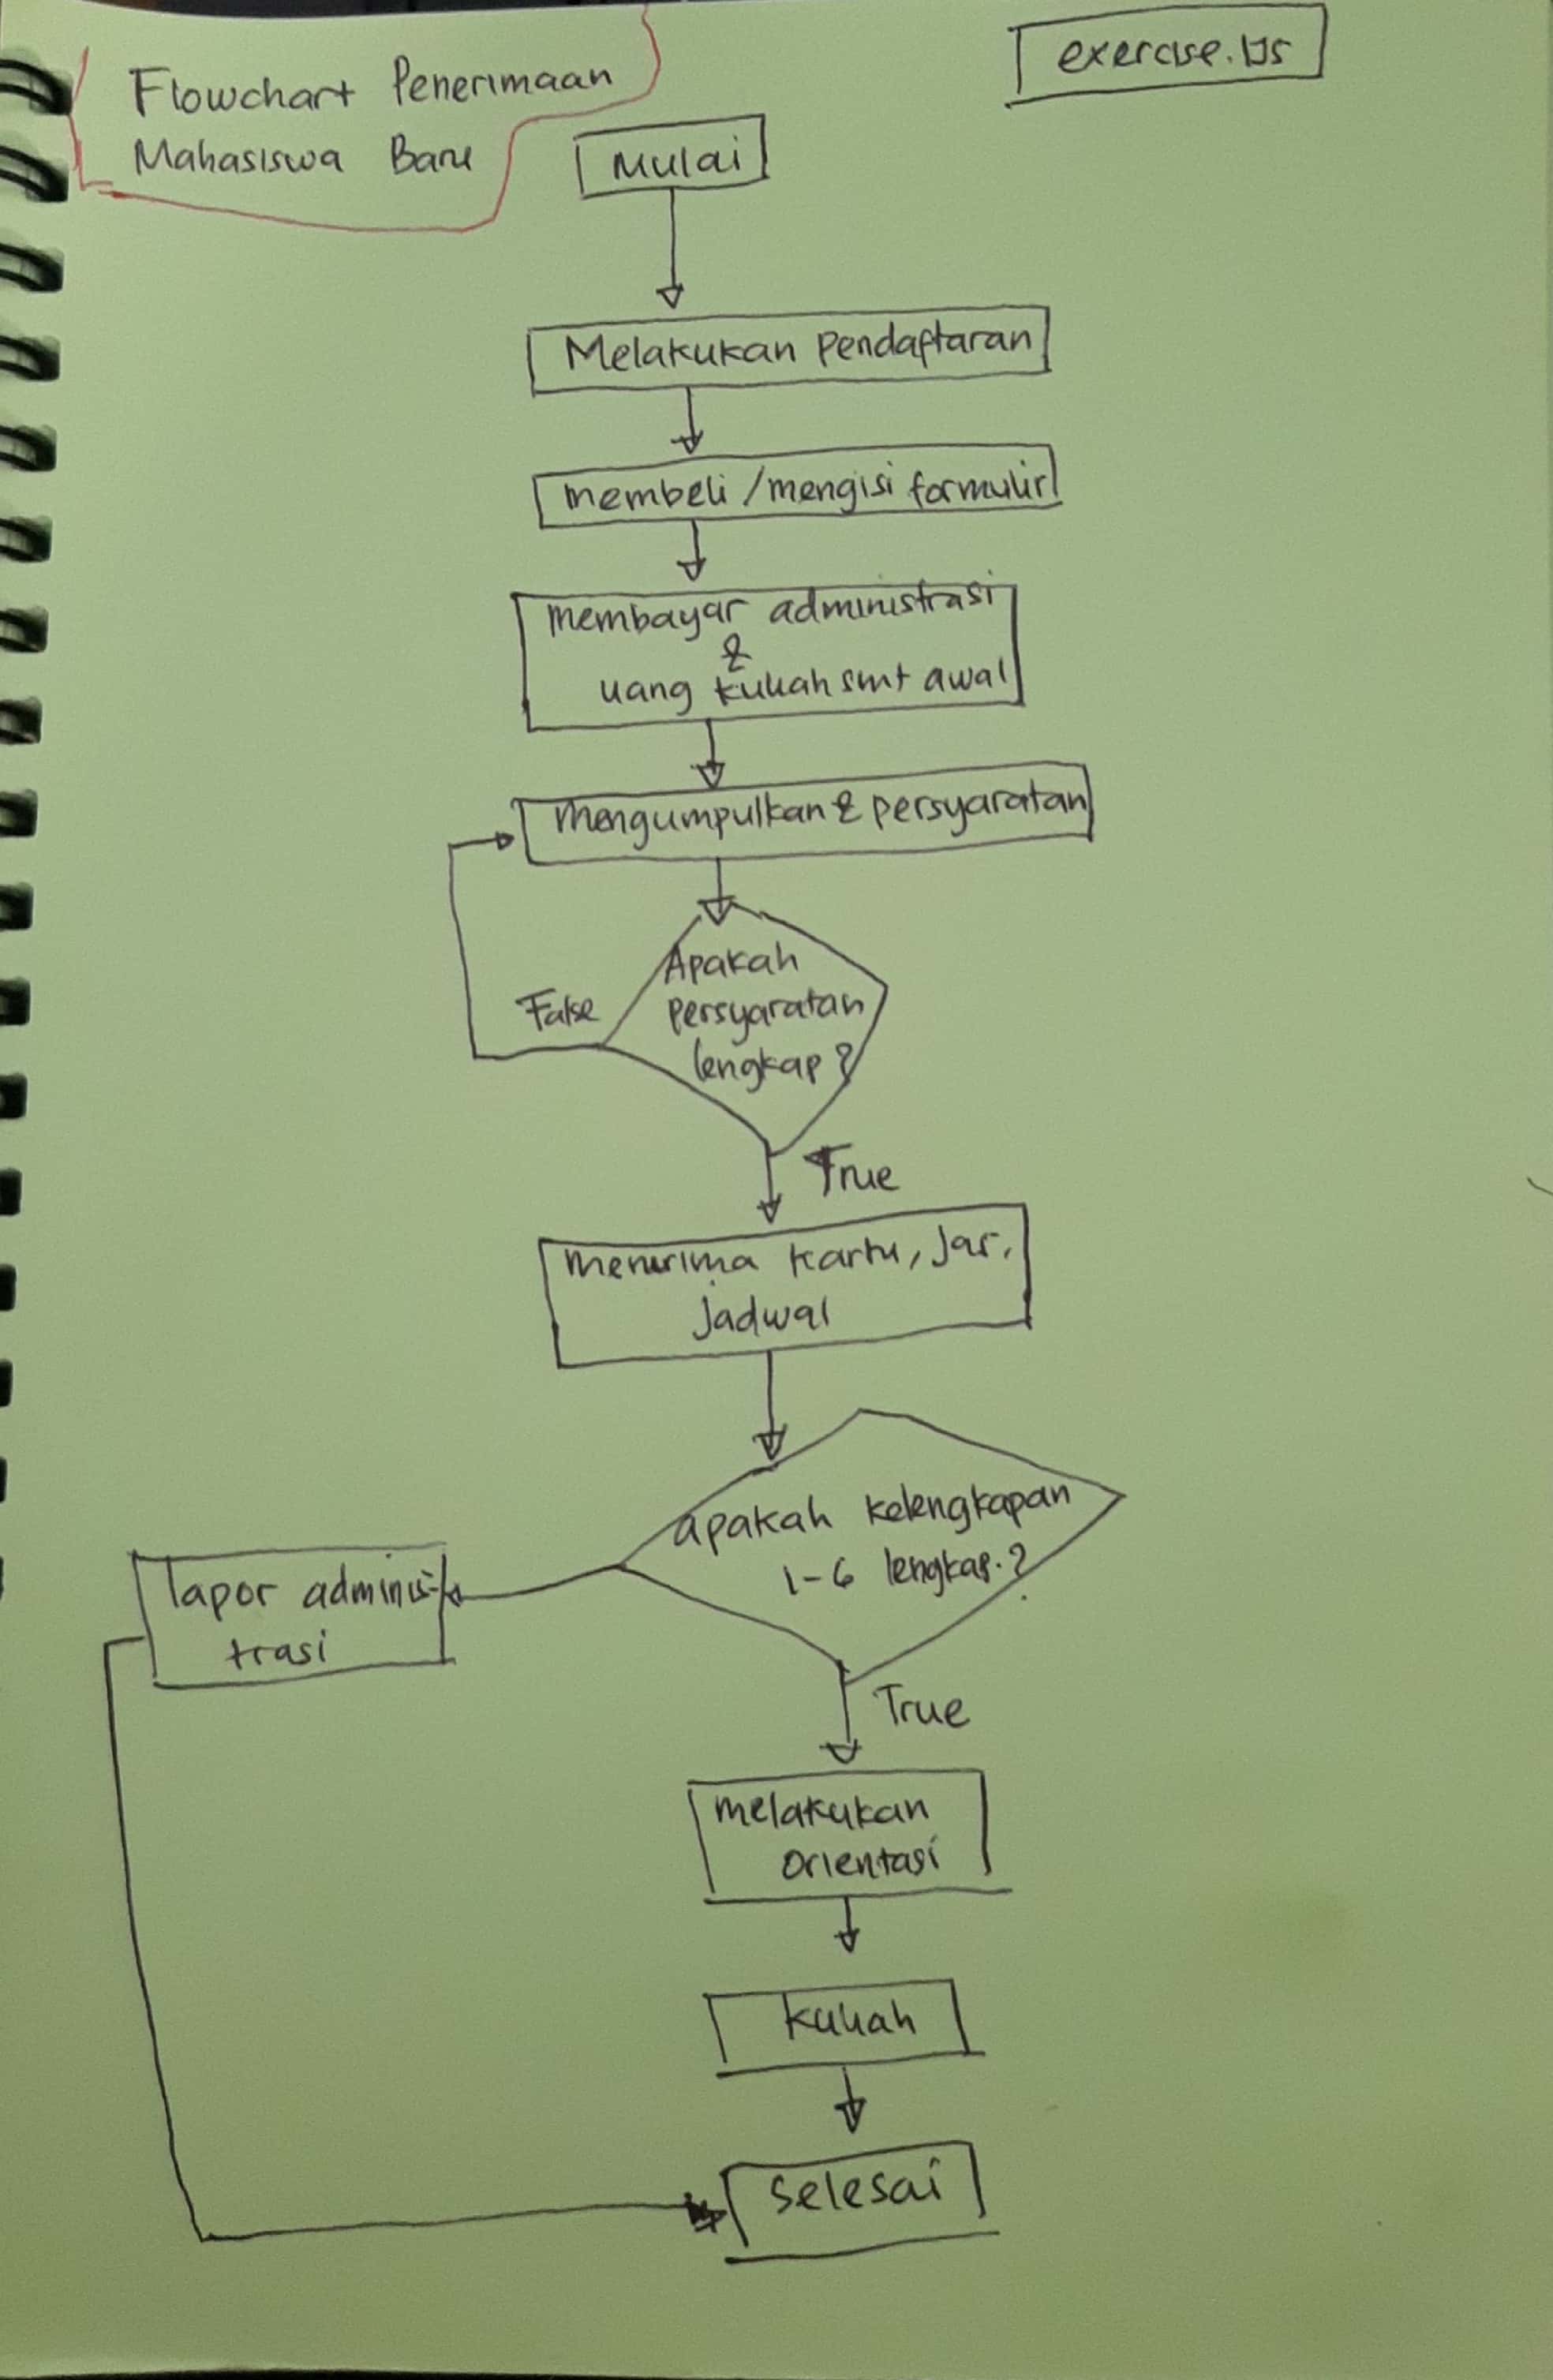 Flowchart Penerimaan
Mahasiswa Baru
exercise.
Mulai
Melakukan pendaftaran
membeli / mengisi formulir
membayar administrasi
&
uang kuliah smt awal
mengumpulkan & persyaratan
Apakah
persyaratan
lengkap?
False
True
menerima kartu, Jas,
Jadwal
apakah kelengkapan
1-6 lengkap.?
lapor adminis-
trasi
True
melakukan
orientasi
kuliah
selesai